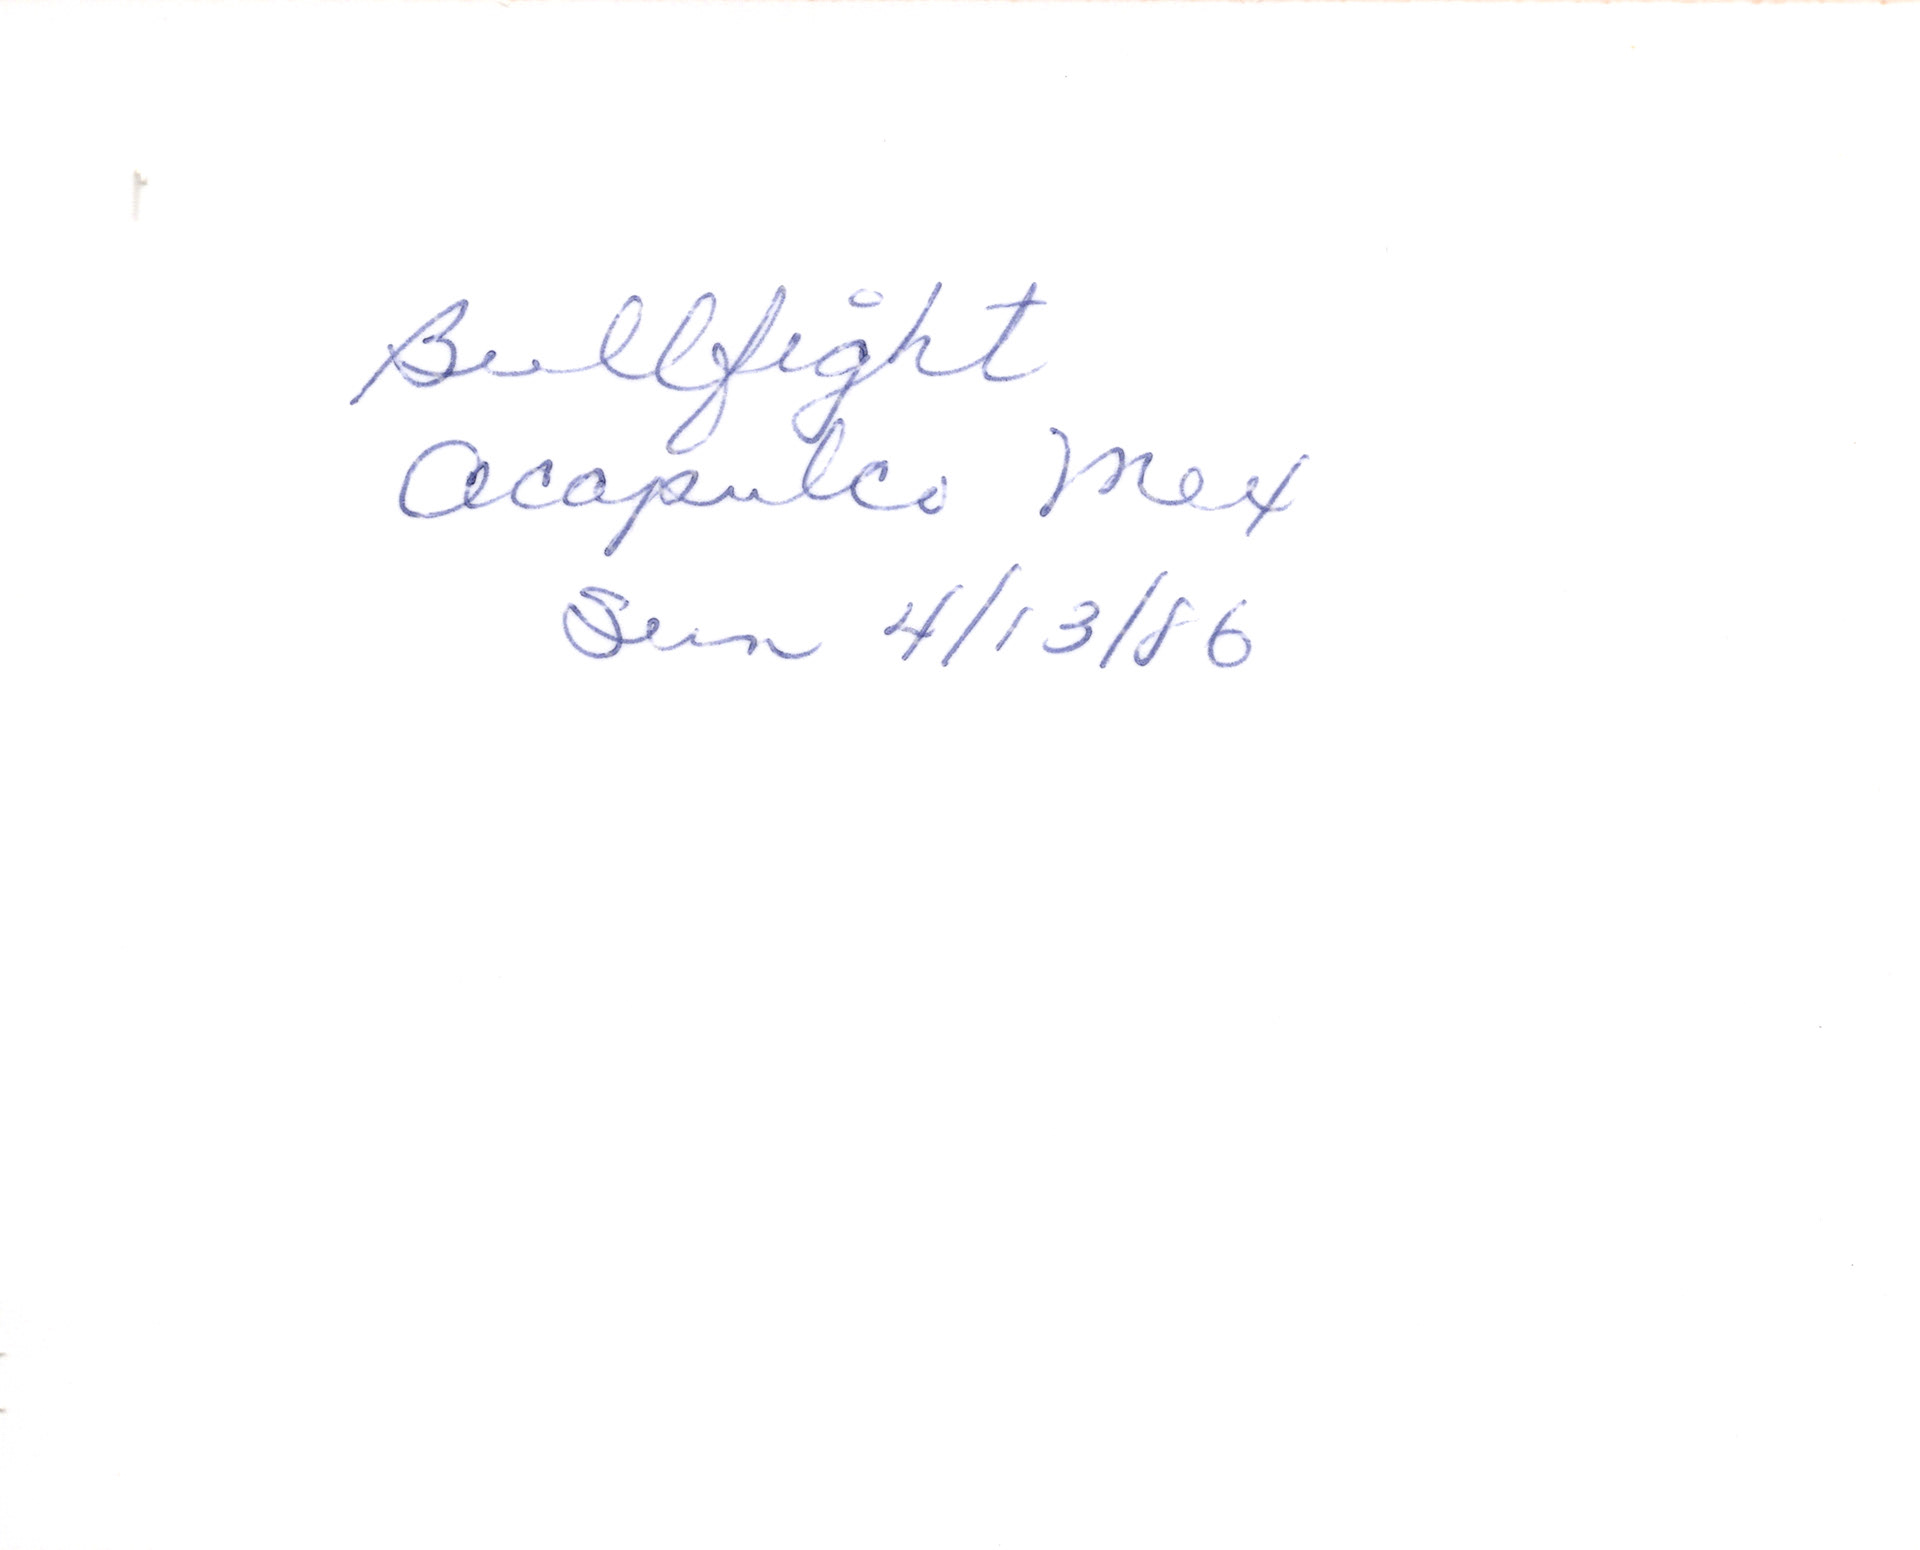 Bullfight
Acapulco Mex
Sun 4/13/86